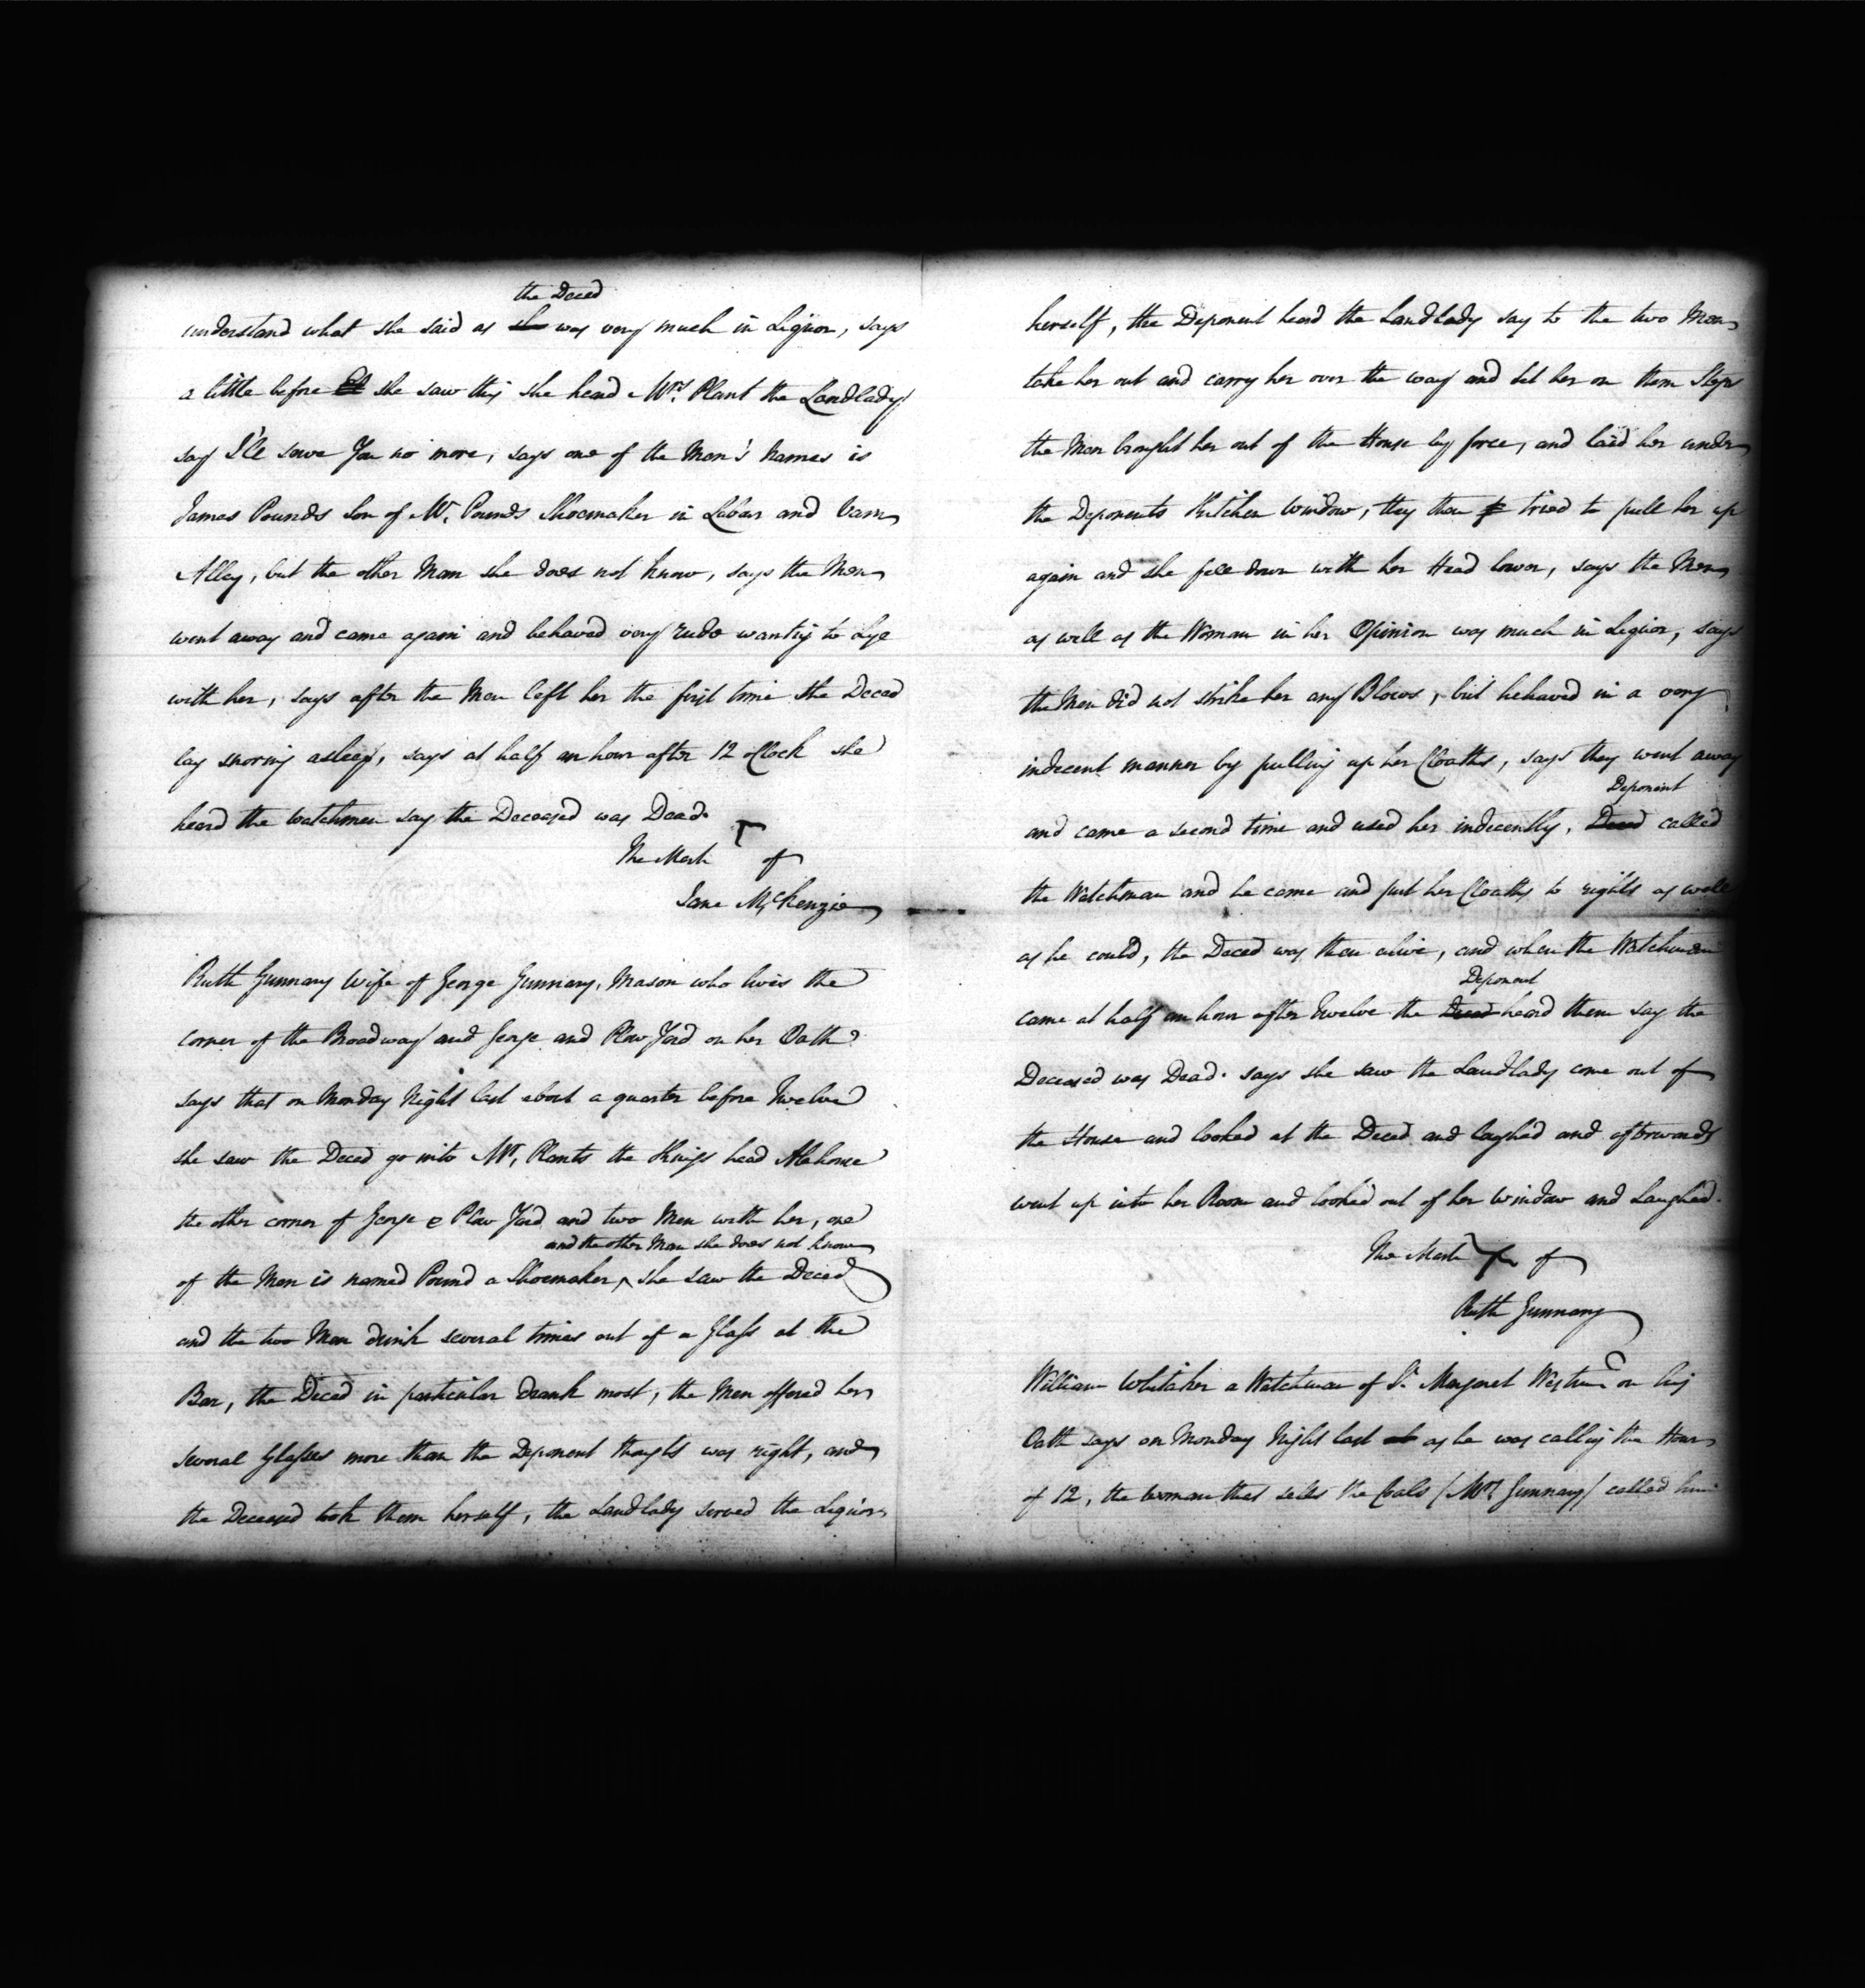 the Deced
understand what she said as she was very much in Liquor, says
a little before she saw this she heard Mrs. Plant the Landlady
say I'le serve You no more, says one of the Men's Names is
James Pounds Son of Mr. Pounds Shoemaker in and
Alley, but the other Man she does not know, says the Men
went away and came again and behaved very rude wantig to Lye
with her, says after the Men left her the first time the Deced
lay snoring asleep, says at half an hour after 12 oClock she
heard the Watchmen say the Deceased was Dead.
The Mark of
Jane McKenzie
Ruth Gunnary Wife of George Gunnary, Mason who lives the
corner of the Broadway and George and Plow Yard on her Oath
says that on Monday Night last about a quarter before Twelve
she saw the Deced go into Mr. Plants the Kings head Alehouse
the other corner of George & Plow Yard and two Men with her, one
and the other Man she does not know
of the Men is named Pound a Shoemaker, she saw the Deced
and the two Men drink several times out of a Glass at the
Bar, the Deced in particular drank most, the Men offered her
several Glasses more than the Deponent thought was right, and
the Deceased took them herself, the Landlady served the Liquor
herself, the Deponent heard the Landlady say to the two Men
take her out and carry her over the way and set her on them Steps
the Men brought her out of the House by force, and laid her under
the Deponents Kitchen Window, they then tried to pull her up
again and she fell down with her Head lower, says the Men
as well as the Woman in her Opinion was much in Liquor, says
the Men did not strike her any Blows, but behaved in a very
indecent manner by pulling up her Cloaths, says they went away
Deponent
and came a second time and used her indecently, Deced called
the Watchman and he came and put her Cloaths to rights as well
as he could, the Deced was then alive, and when the Watchman
Deponent
came at half an hour after Twelve the Deced heard them say the
Deceased was Dead. says she saw the Landlady come out of
the House and looked at the Deced and laughed and afterwards
went up into her Room and looked out of her Window and Laughed.
The Mark of
Ruth Gunnary
William Whitaker a Watchman of St. Margaret Westmr. on his
Oath says on Monday Night last as he was calling the Hour
of 12, the Woman that sells the Coals (Mrs. Gunnary) called him